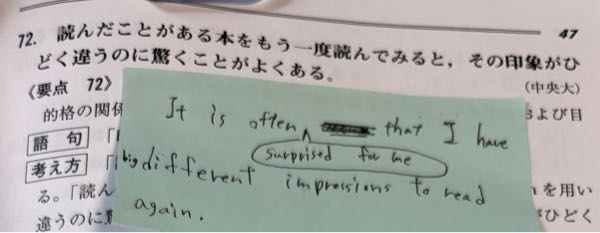 47
72. 読んだことがある本をもう一度読んでみると，その印象がひ
どく違うのに驚くことがよくある。
(中央大)
《要点 72》
It is often that I have
surprised for me
的格の関係
および目
語句
big different impressions to read
考え方
again.
る。「読ん
を用い
違うのに驚
がひどく